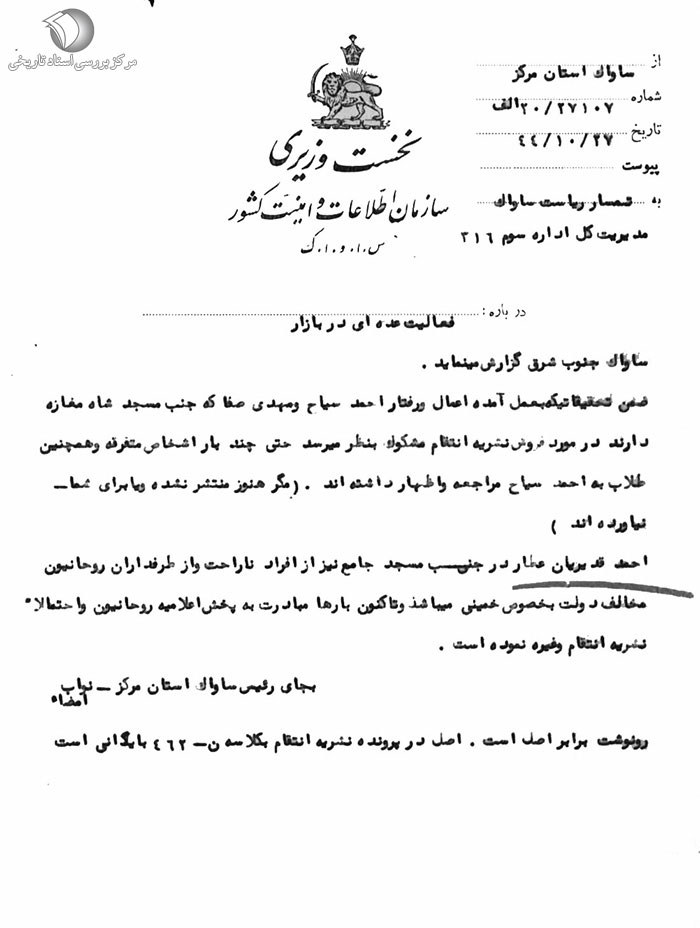 مرکز بررسی اسناد تاریخی
نخست وزیری
سازمان اطلاعات و امنیت کشور
س.ا.و.ا.ک
از ساواك استان مرکز
شماره ۲۰/۲۷۱۰۷الف
تاریخ ٤٤/۱۰/۲۷
پیوست
به تیمسار ریاست ساواك
مدیریت کل اداره سوم ۳۱٦
در باره: فعالیت عده ای در بازار
ساواك جنوب شرق گزارش مینماید .
ضمن تحقیقاتیکه بعمل آمده اعمال ورفتار احمد سیاح ومهدی صفا که جنب مسجد شاه مغازه
دارند در مورد فروش نشریه انتقام مشکوك بنظر میرسد حتی چند بار اشخاص متفرقه وهمچنین
طلاب به احمد سیاح مراجعه واظهار داشته اند . (مگر هنوز منتشر نشده ویا برای شما –
نیاورده اند )
احمد قدیریان عطار در جنب مسجد جامع نیز از افراد ناراحت واز طرفداران روحانیون
مخالف دولت بخصوص خمینی میباشد وتاکنون بارها مبادرت به پخش اعلامیه روحانیون واحتمالا"
نشریه انتقام وغیره نموده است .
بجای رئیس ساواك استان مرکز – نواب
امضاء
رونوشت برابر اصل است . اصل در پرونده نشریه انتقام بکلاسه ن – ٤٦٢ بایگانی است